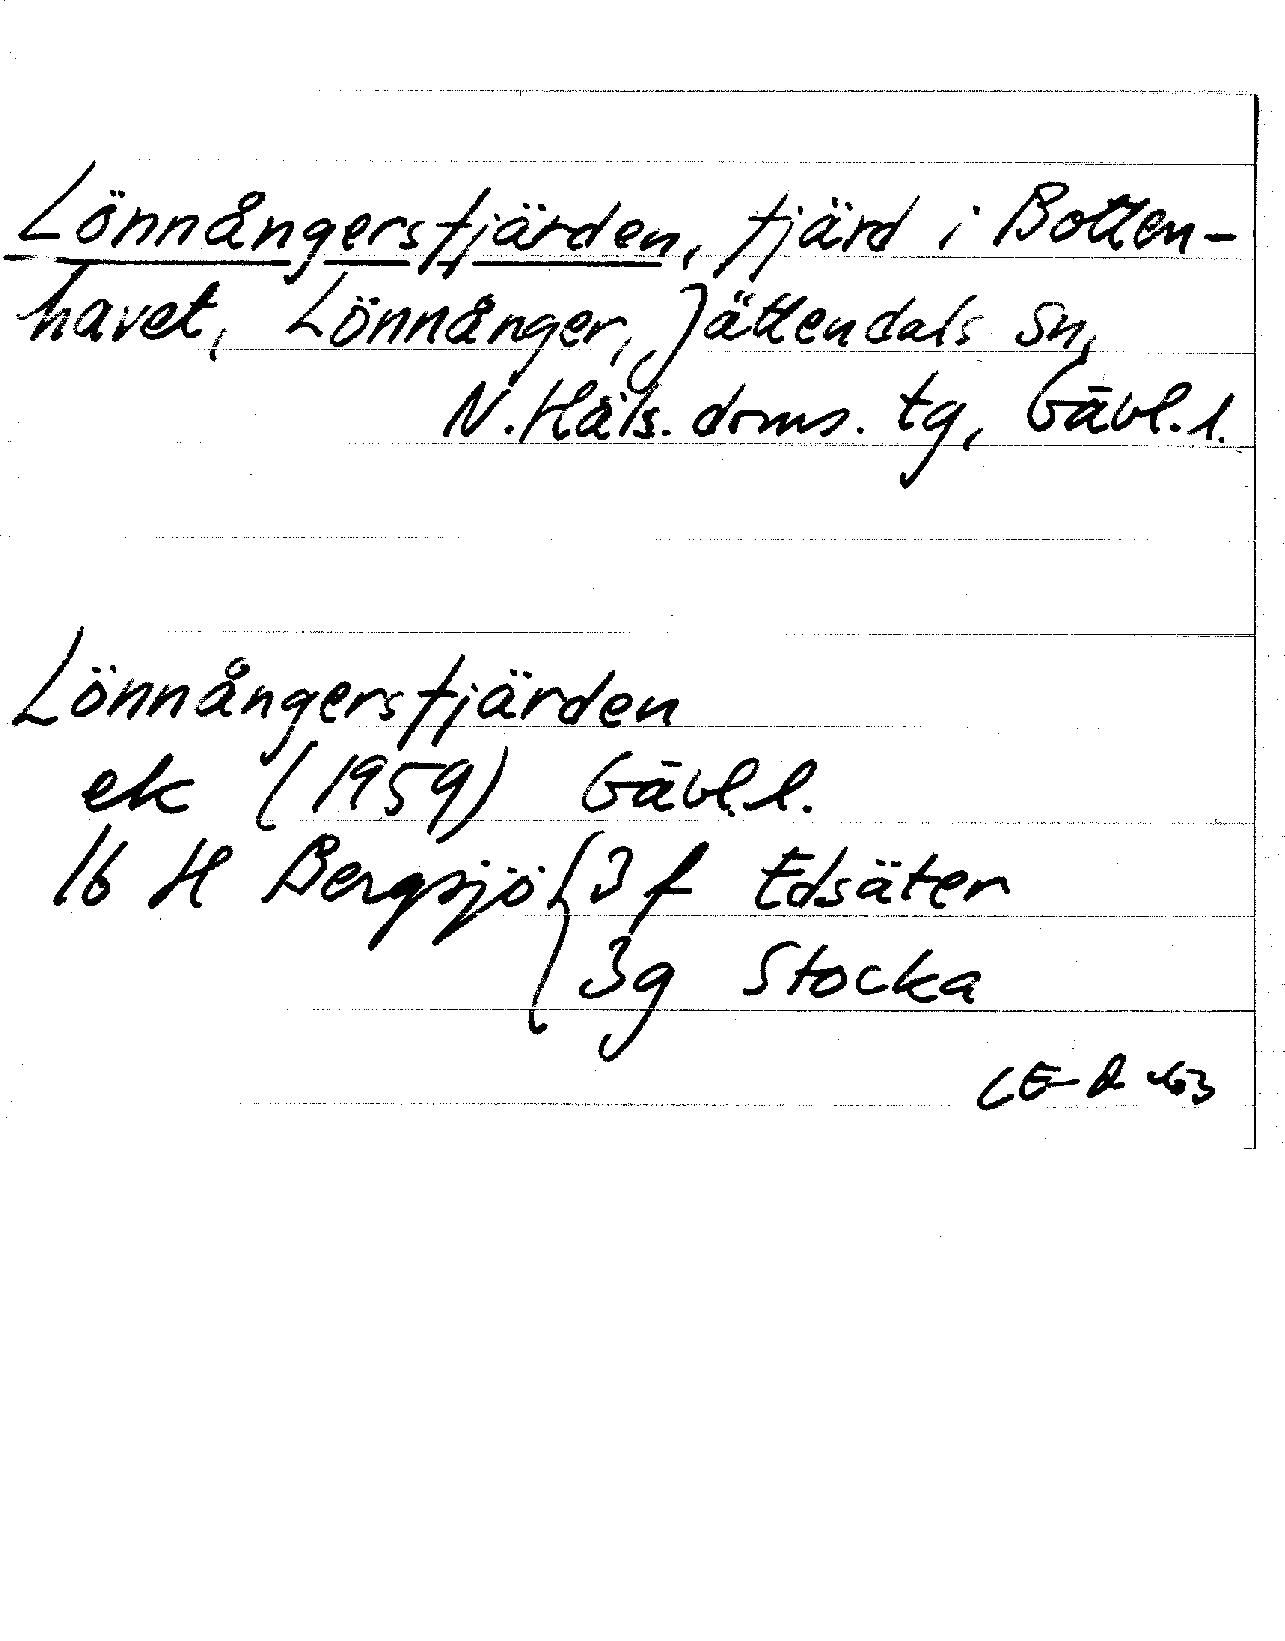 Lönnångersfjärden, fjärd i Botten-
havet, Lönnånger, Jättendals sn,
N. Häls. doms. tg, Gävl. l.
Lönnångersfjärden
ek (1959) Gävl. l.
16 H Bergsjö { 3 f Edsäter
3g Stocka
63